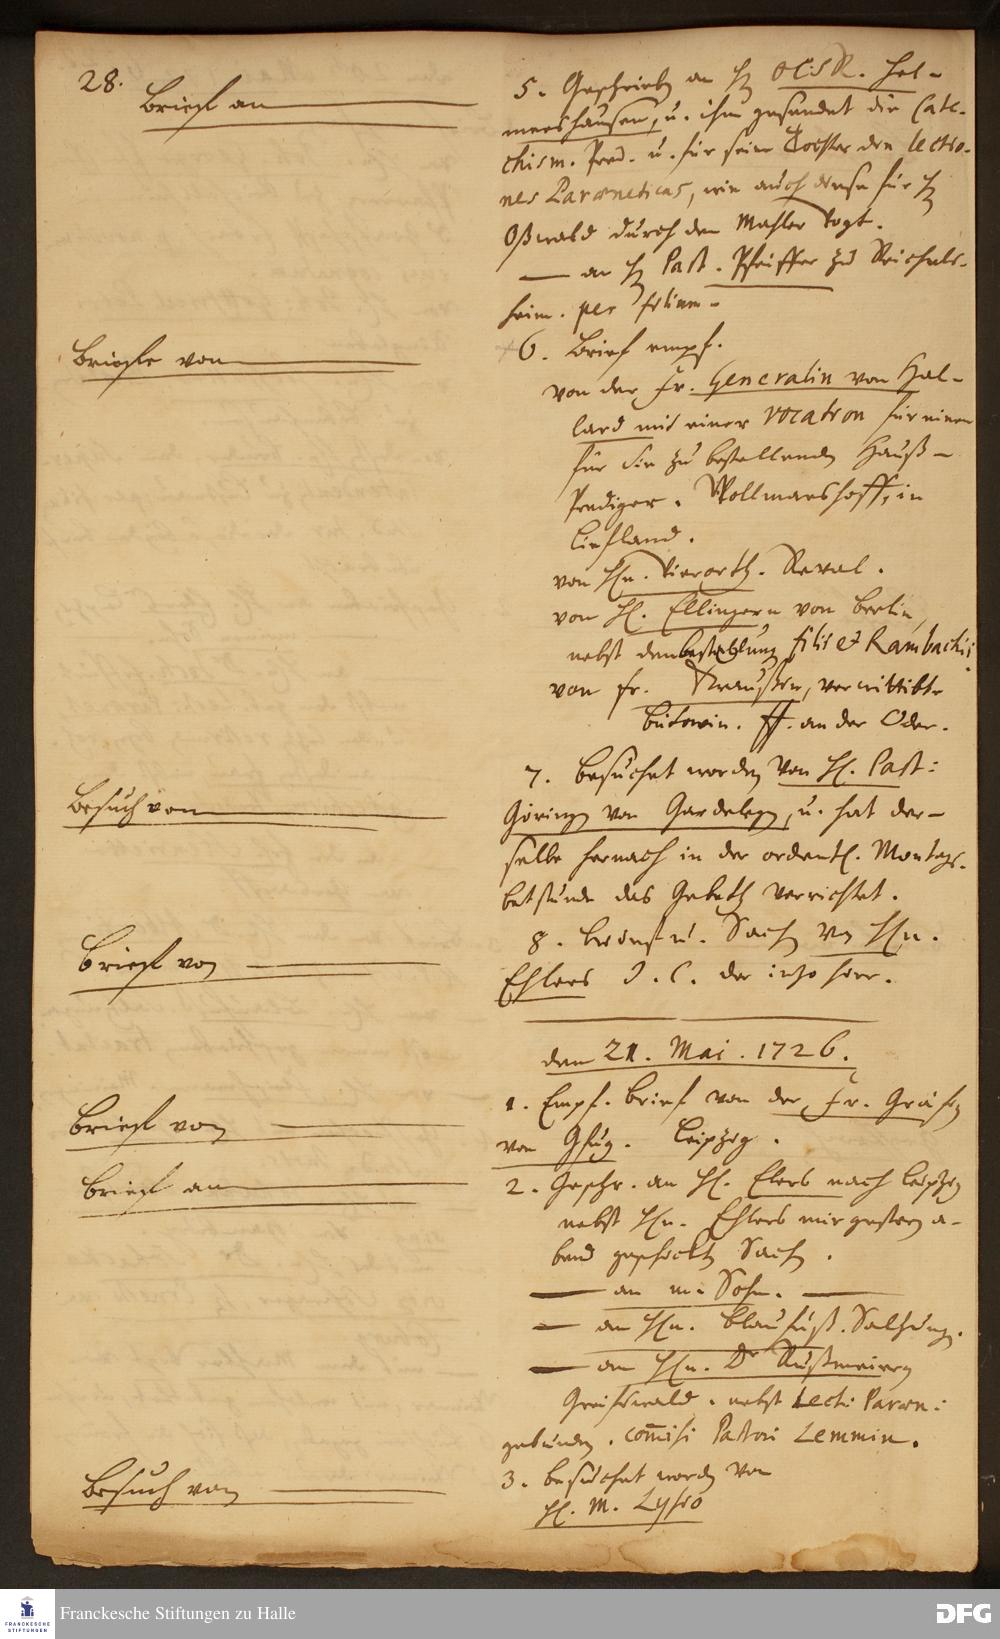 28.
Briefe an
5. Geschrieben an H. OCSR. Hel-
mershausen, u. ihm gesendet die Cate-
chism. Pred. u. für seine Tochter den lectio-
nes Paraeneticas, wie auch diese für H.
Oßwald durch den Mahler Vogt.
— an H. Past. Pfeiffer zu Reichels-
heim. per filium.
Briefe von
6. Brief empf.
von der Fr. Generalin von Hal-
lard mit einer vocation für einen
für Sie zu bestellenden Hauß-
Prediger. Wollmarshoff, in
Liefland.
von Hn. Vierorth. Reval.
von H. Ellingern von Berlin,
nebst den bestallung filii et Rambachii
von Fr. Straußen, verwittibte
Bütowin. ff. an der Oder.
Besuch von
7. Besuchet worden von H. Past:
Göring von Gardelegen, u. hat der-
selbe hernach in der ordentl. Montags-
betstunde das Gebeth verrichtet.
Briefe von
8. Brief u. Sachen von Hn.
Ehlers J. C. der itzo hier.
den 21. Mai. 1726.
Briefe von
1. Empf. Brief von der Fr. Gräfin
von Gfug. Leipzig.
Briefe an
2. Geschr. an H. Elers nach Leipzig
nebst Hn. Ehlers mir gestern a-
bend geschickten Sachen.
— an m. Sohn. —
— an Hn. Blaufuß. Salzung.
— an Hn. Dr Rußmeiern
Greifswald. nebst Lect: Paraen:
gebunden. com̅isi Pastori Lemmin.
Besuch von
3. besuchet worden von
H. M. Lysio
Franckesche Stiftungen zu Halle
FRANCKESCHE
STIFTUNGEN
DFG